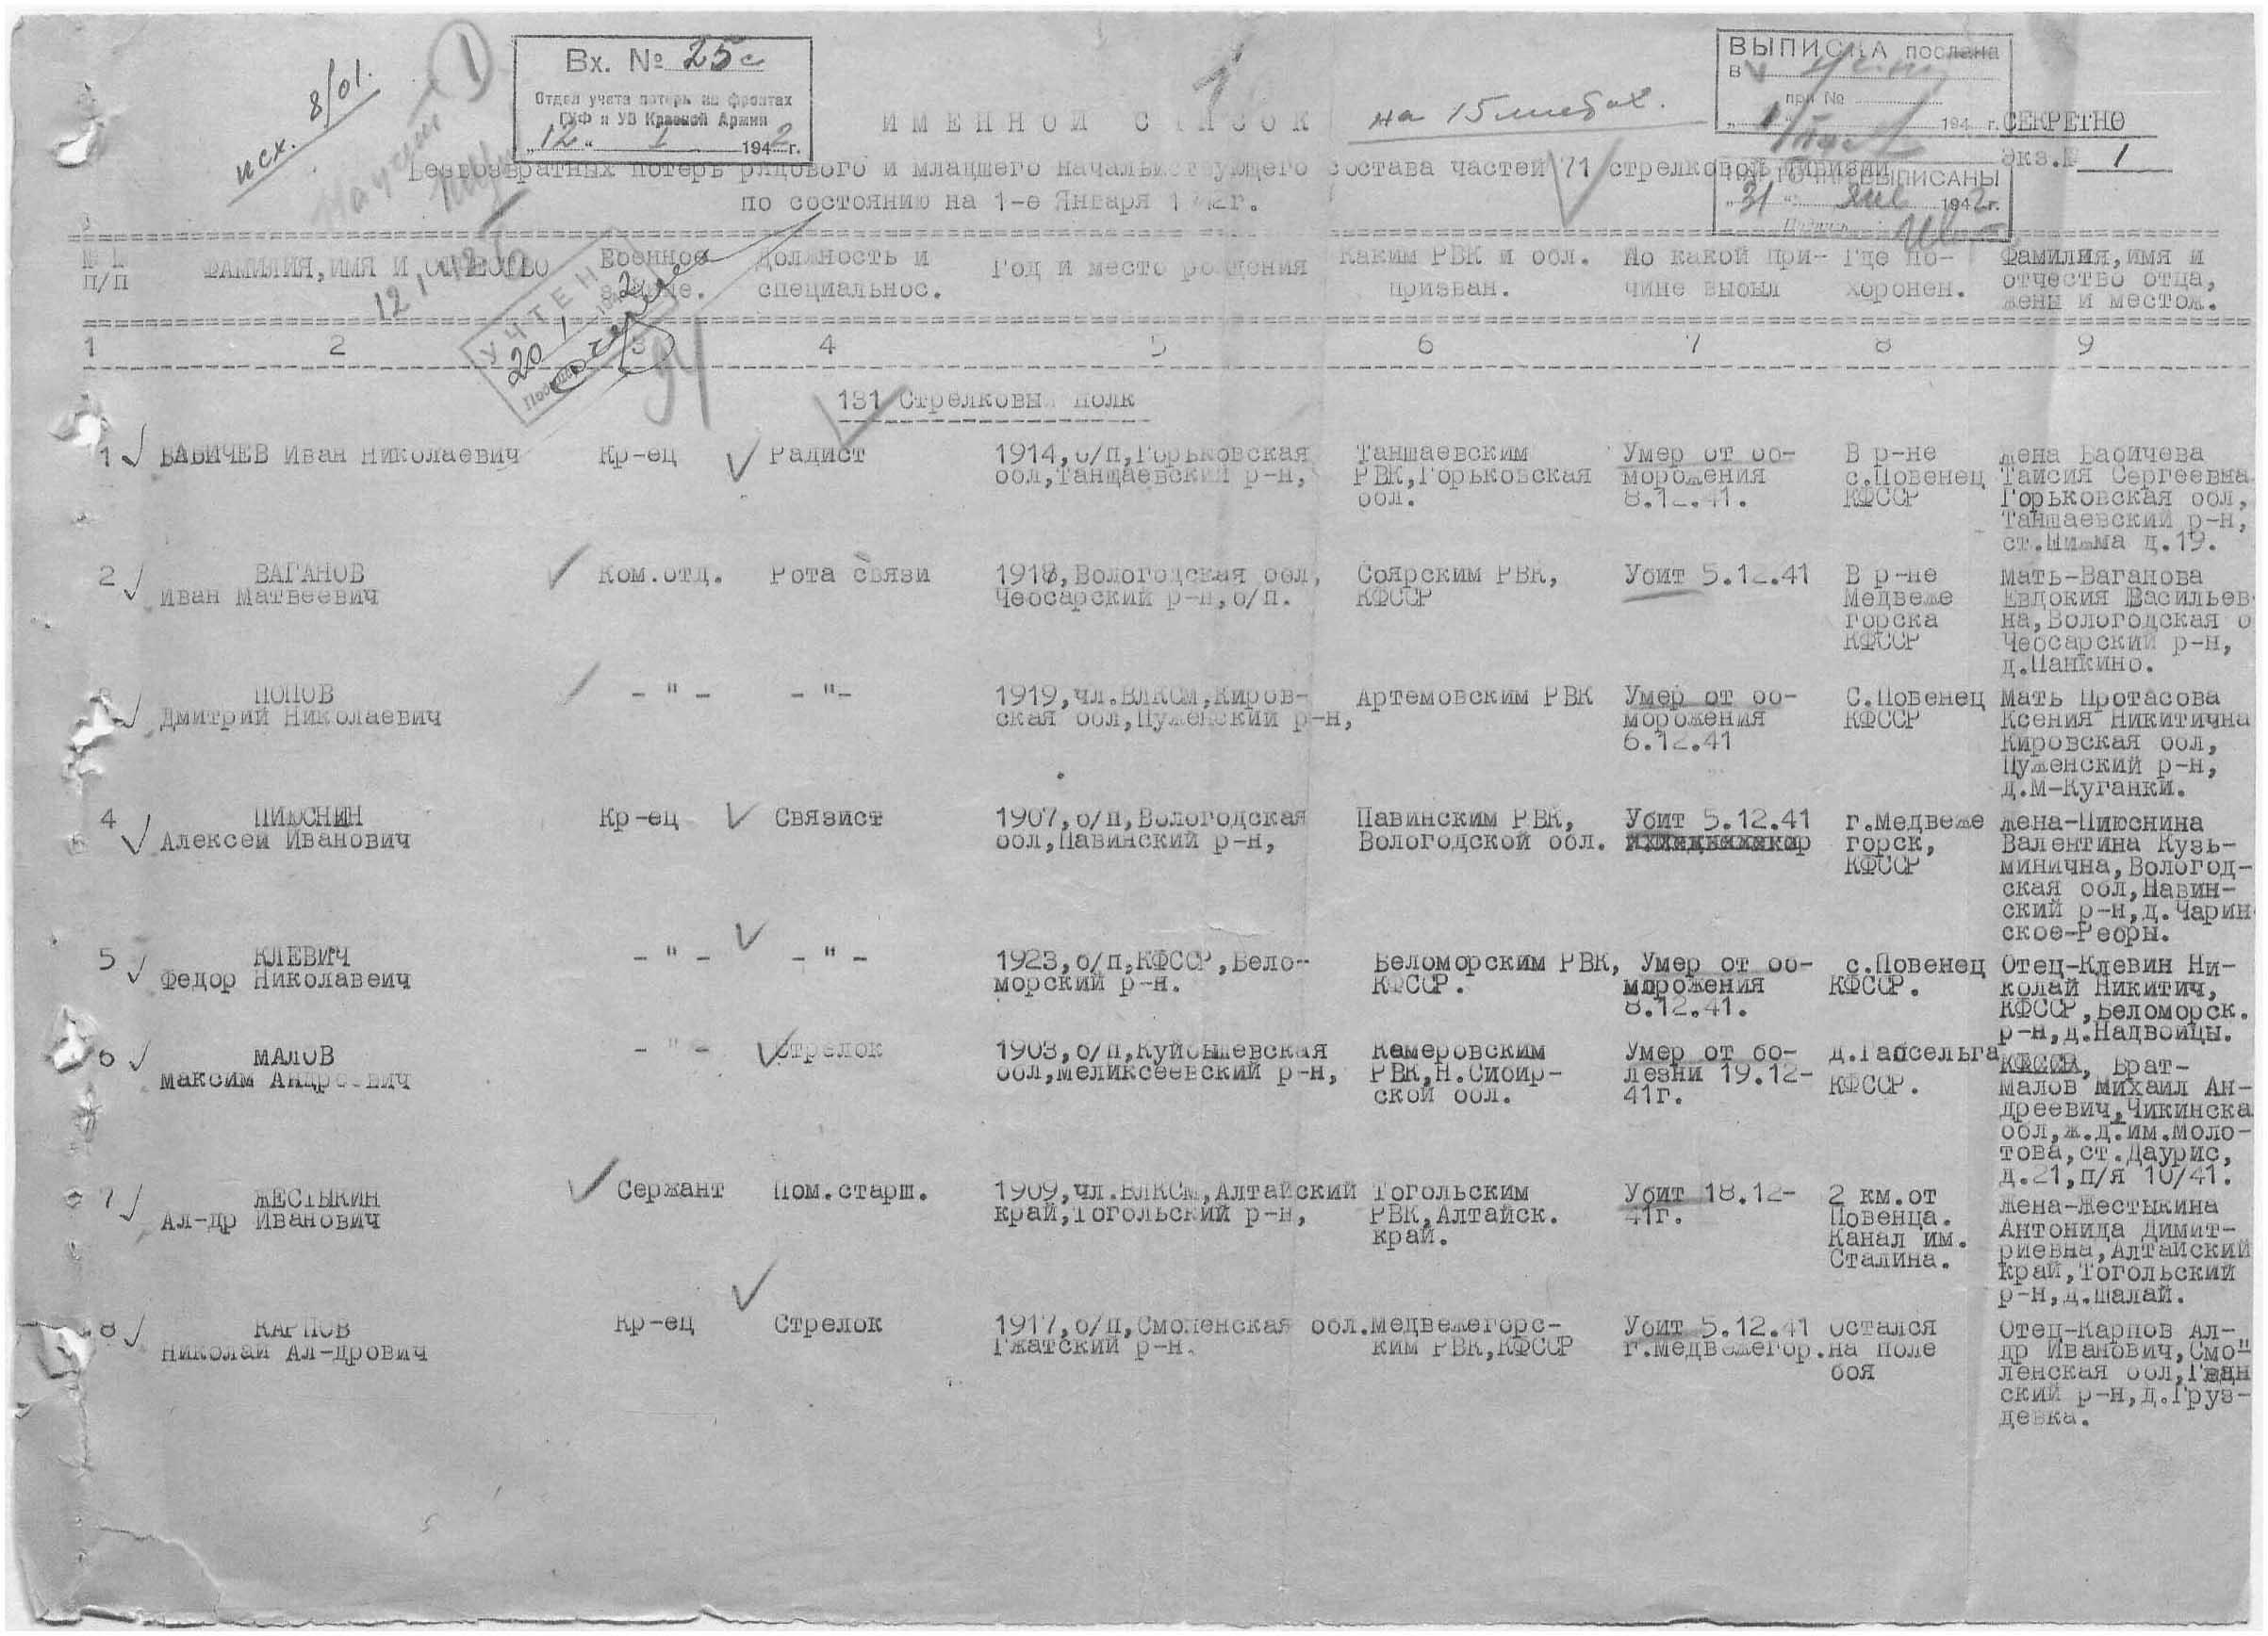 исх. 8/01.
1
Вх. № 25с
Отдел учета потерь на фронтах
ГУФ и УВ Красной Армии
„12" 1 1942г.
ВЫПИСКА послана
в
при №
194 г.
СЕКРЕТНО
Экз.№ 1
НА ГО ВЫПИСАНЫ
„31" 1942г.
ИМЕННОЙ СПИСОК
на 15 листах.
Безвозвратных потерь рядового и младшего начальствующего состава частей 71 стрелковой дивизии
по состоянию на 1-е Января 1942г.
№ №
п/п
ФАМИЛИЯ, ИМЯ И ОТЧЕСТВО
Военное
звание.
Должность и
специальнос.
Год и место рождения
Каким РВК и обл.
призван.
По какой при-
чине выбыл
Где по-
хоронен.
Фамилия, имя и
отчество отца,
жены и местож.
УЧТЕНО
20
12/1-42
1 2 3 4 5 6 7 8 9
131 Стрелковый полк
1 БАБИЧЕВ Иван Николаевич
Кр-ец
Радист
1914,б/п,Горьковская
обл,Таншаевский р-н,
Таншаевским
РВК,Горьковская
обл.
Умер от об-
морожения
8.12.41.
В р-не
с.Повенец
КФССР
жена Бабичева
Таисия Сергеевна
Горьковская обл,
Таншаевский р-н,
ст.Шижма д.19.
2 ВАГАНОВ
Иван Матвеевич
Ком.отд.
Рота связи
1918,Вологодская обл,
Чебсарский р-н,б/п.
Соярским РВК,
КФССР
Убит 5.12.41
В р-не
Медвеже
горска
КФССР
мать-Ваганова
Евдокия Васильев-
на,Вологодская о
Чебсарский р-н,
д.Панкино.
ПОПОВ
Дмитрий Николаевич
- " -
- "-
1919,чл.ВЛКСМ,Киров-
ская обл,Пуженский р-н,
Артемовским РВК
Умер от об-
морожения
6.12.41
С.Повенец
КФССР
мать Протасова
Ксения Никитична
Кировская обл,
Пуженский р-н,
д.М-Куганки.
4 ПИЮСНИН
Алексей Иванович
Кр-ец
Связист
1907,б/п,Вологодская
обл,Павинский р-н,
Павинским РВК,
Вологодской обл.
Убит 5.12.41
г.Медвеже
горск,
КФССР
жена-Пиюснина
Валентина Кузь-
минична,Вологод-
ская обл,Павин-
ский р-н,д.Чарин
ское-Ребры.
5 КЛЕВИЧ
Федор Николавеич
- " -
- " -
1923,б/п,КФССР,Бело-
морский р-н.
Беломорским РВК,
КФССР.
Умер от об-
морожения
8.12.41.
с.Повенец
КФССР.
Отец-Клевин Ни-
колай Никитич,
КФССР,Беломорск.
р-н,д.Надвоицы.
6 МАЛОВ
Максим Андреевич
- " -
Стрелок
1903,б/п,Куйбышевская
обл,Меликсеевский р-н,
Кемеровским
РВК,Н.Сибир-
ской обл.
Умер от бо-
лезни 19.12-
41г.
д.Габсельга
КФССР.
КФССР, Брат-
Малов Михаил Ан-
дреевич,Чикинска
обл,ж.д.им.Моло-
това,ст.Даурис,
д.21,п/я 10/41.
7 ЖЕСТЫКИН
Ал-др Иванович
Сержант
Пом.старш.
1909,чл.ВЛКСМ,Алтайский
край,Тогольский р-н,
Тогольским
РВК,Алтайск.
край.
Убит 18.12-
41г.
2 км.от
Повенца.
Канал им.
Сталина.
Жена-Жестыкина
Антонида Димит-
риевна,Алтайский
край,Тогольский
р-н,д.Шалай.
8 КАРПОВ
Николай Ал-дрович
Кр-ец
Стрелок
1917,б/п,Смоленская обл.
Гжатский р-н.
Медвежегорс-
ким РВК,КФССР
Убит 5.12.41
г.Медвежегор.
остался
на поле
боя
Отец-Карпов Ал-
др Иванович,Смо-
ленская обл,Гжан
ский р-н,д.Груз-
девка.